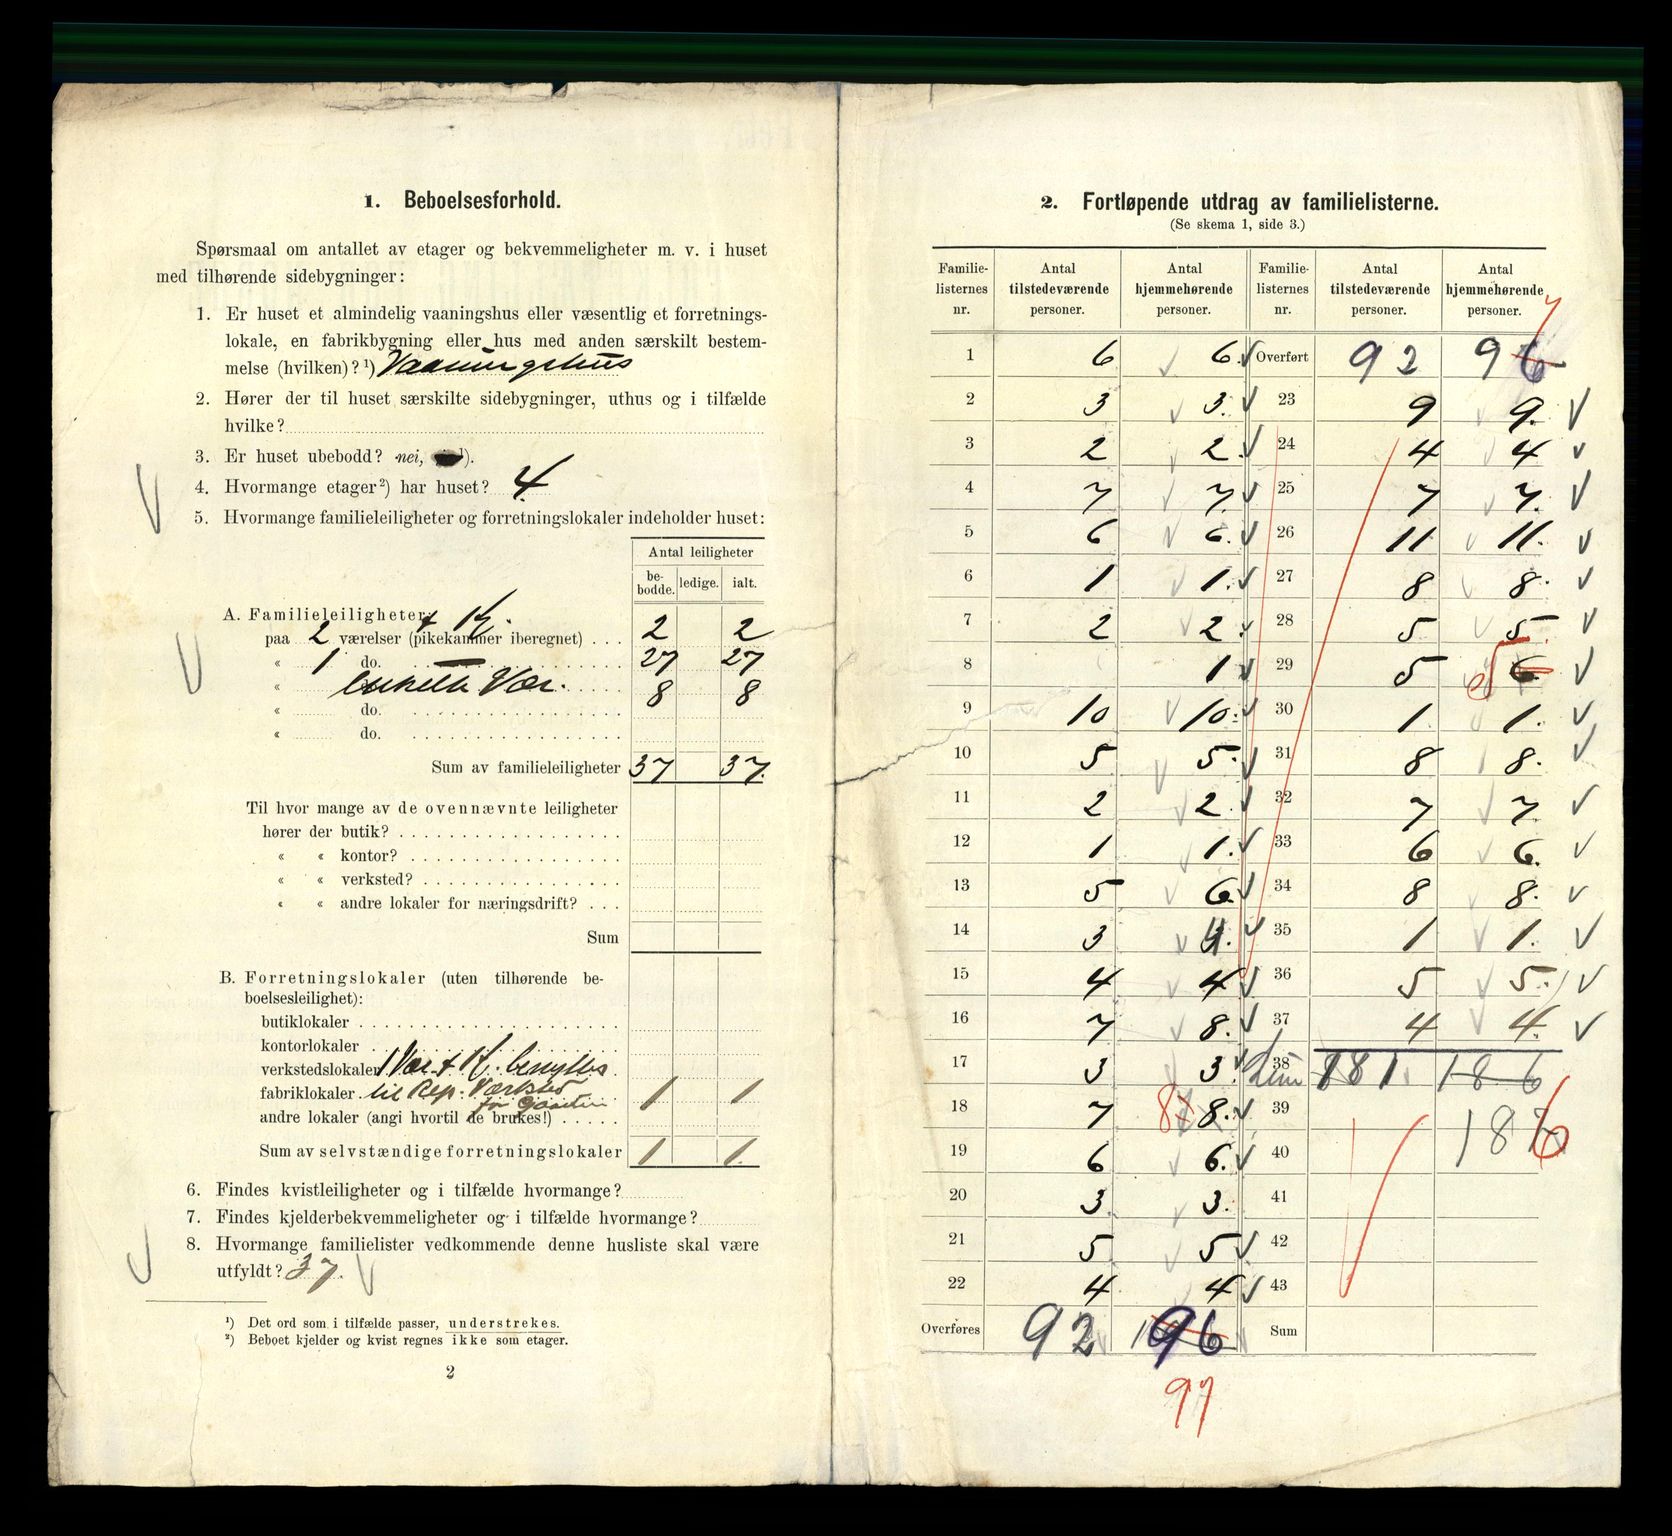 1. Beboelsesforhold.
Spørsmaal om antallet av etager og bekvemmeligheter m. v. i huset
med tilhørende sidebygninger:
1. Er huset et almindelig vaaningshus eller væsentlig et forretnings-
lokale, en fabrikbygning eller hus med anden særskilt bestem-
melse (hvilken)?¹) Vaaningshus
2. Hører der til huset særskilte sidebygninger, uthus og i tilfælde
hvilke?
3. Er huset ubebodd? nei, ¹).
4. Hvormange etager²) har huset? 4
5. Hvormange familieleiligheter og forretningslokaler indeholder huset:
Antal leiligheter
be-bodde. ledige. ialt.
A. Familieleiligheter: + Kj.
paa 2 værelser (pikekammer iberegnet) . . . 2 2
« 1 do. 27 27
« enkelte Vær. 8 8
« do.
« do.
Sum av familieleiligheter 37 37.
Til hvor mange av de ovennævnte leiligheter
hører der butik?
« « kontor?
« « verksted?
« « andre lokaler for næringsdrift? . . .
Sum
B. Forretningslokaler (uten tilhørende be-
boelsesleilighet):
butiklokaler
kontorlokaler
verkstedslokaler 1 Vær + K. benyttes
fabriklokaler til Rep. Værksted 1 1
for
andre lokaler (angi hvortil de brukes!)
Sum av selvstændige forretningslokaler 1 1.
6. Findes kvistleiligheter og i tilfælde hvormange?
7. Findes kjelderbekvemmeligheter og i tilfælde hvormange?
8. Hvormange familielister vedkommende denne husliste skal være
utfyldt? 37.
¹) Det ord som i tilfælde passer, understrekes.
²) Beboet kjelder og kvist regnes ikke som etager.
2
2. Fortløpende utdrag av familielisterne.
(Se skema 1, side 3.)
Familie-listernes nr. Antal tilstedeværende personer. Antal hjemmehørende personer. Familie-listernes nr. Antal tilstedeværende personer. Antal hjemmehørende personer.
1 6 6. Overført 92 96 7
2 3 3. 23 9 9.
3 2 2. 24 4 4
4 7 7. 25 7 7.
5 6 6. 26 11 11.
6 1 1. 27 8 8.
7 2 2. 28 5 5
8 1 29 5 6 5
9 10 10. 30 1 1.
10 5 5. 31 8 8.
11 2 2. 32 7 7.
12 1 1. 33 6 6.
13 5 6. 34 8 8.
14 3 4. 35 1 1.
15 4 4 36 5 5.
16 7 8. 37 4 4.
17 3 3. 38 181 186
18 7 8 8. 39
186
19 6 6. 40
20 3 3. 41
21 5 5 42
22 4 4 43
Overføres 92 96 Sum
97